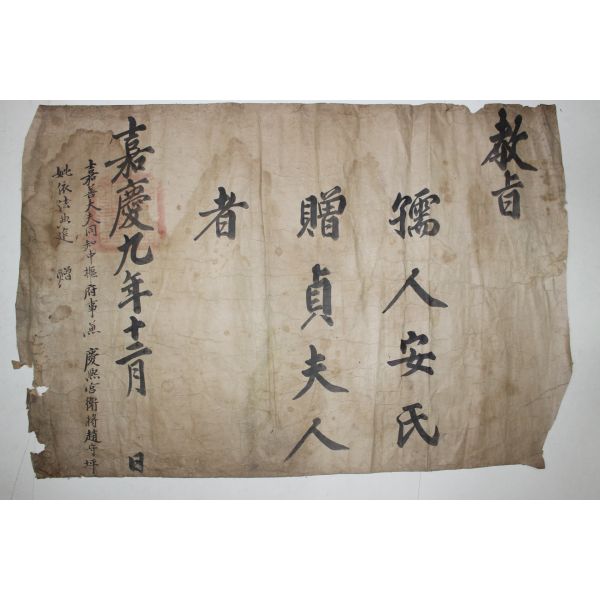 教旨
孺人安氏
贈貞夫人
者
嘉慶九年十二月 日
嘉善大夫同知中樞府事兼 慶熙宮衛將趙守坪
妣依法典追 贈